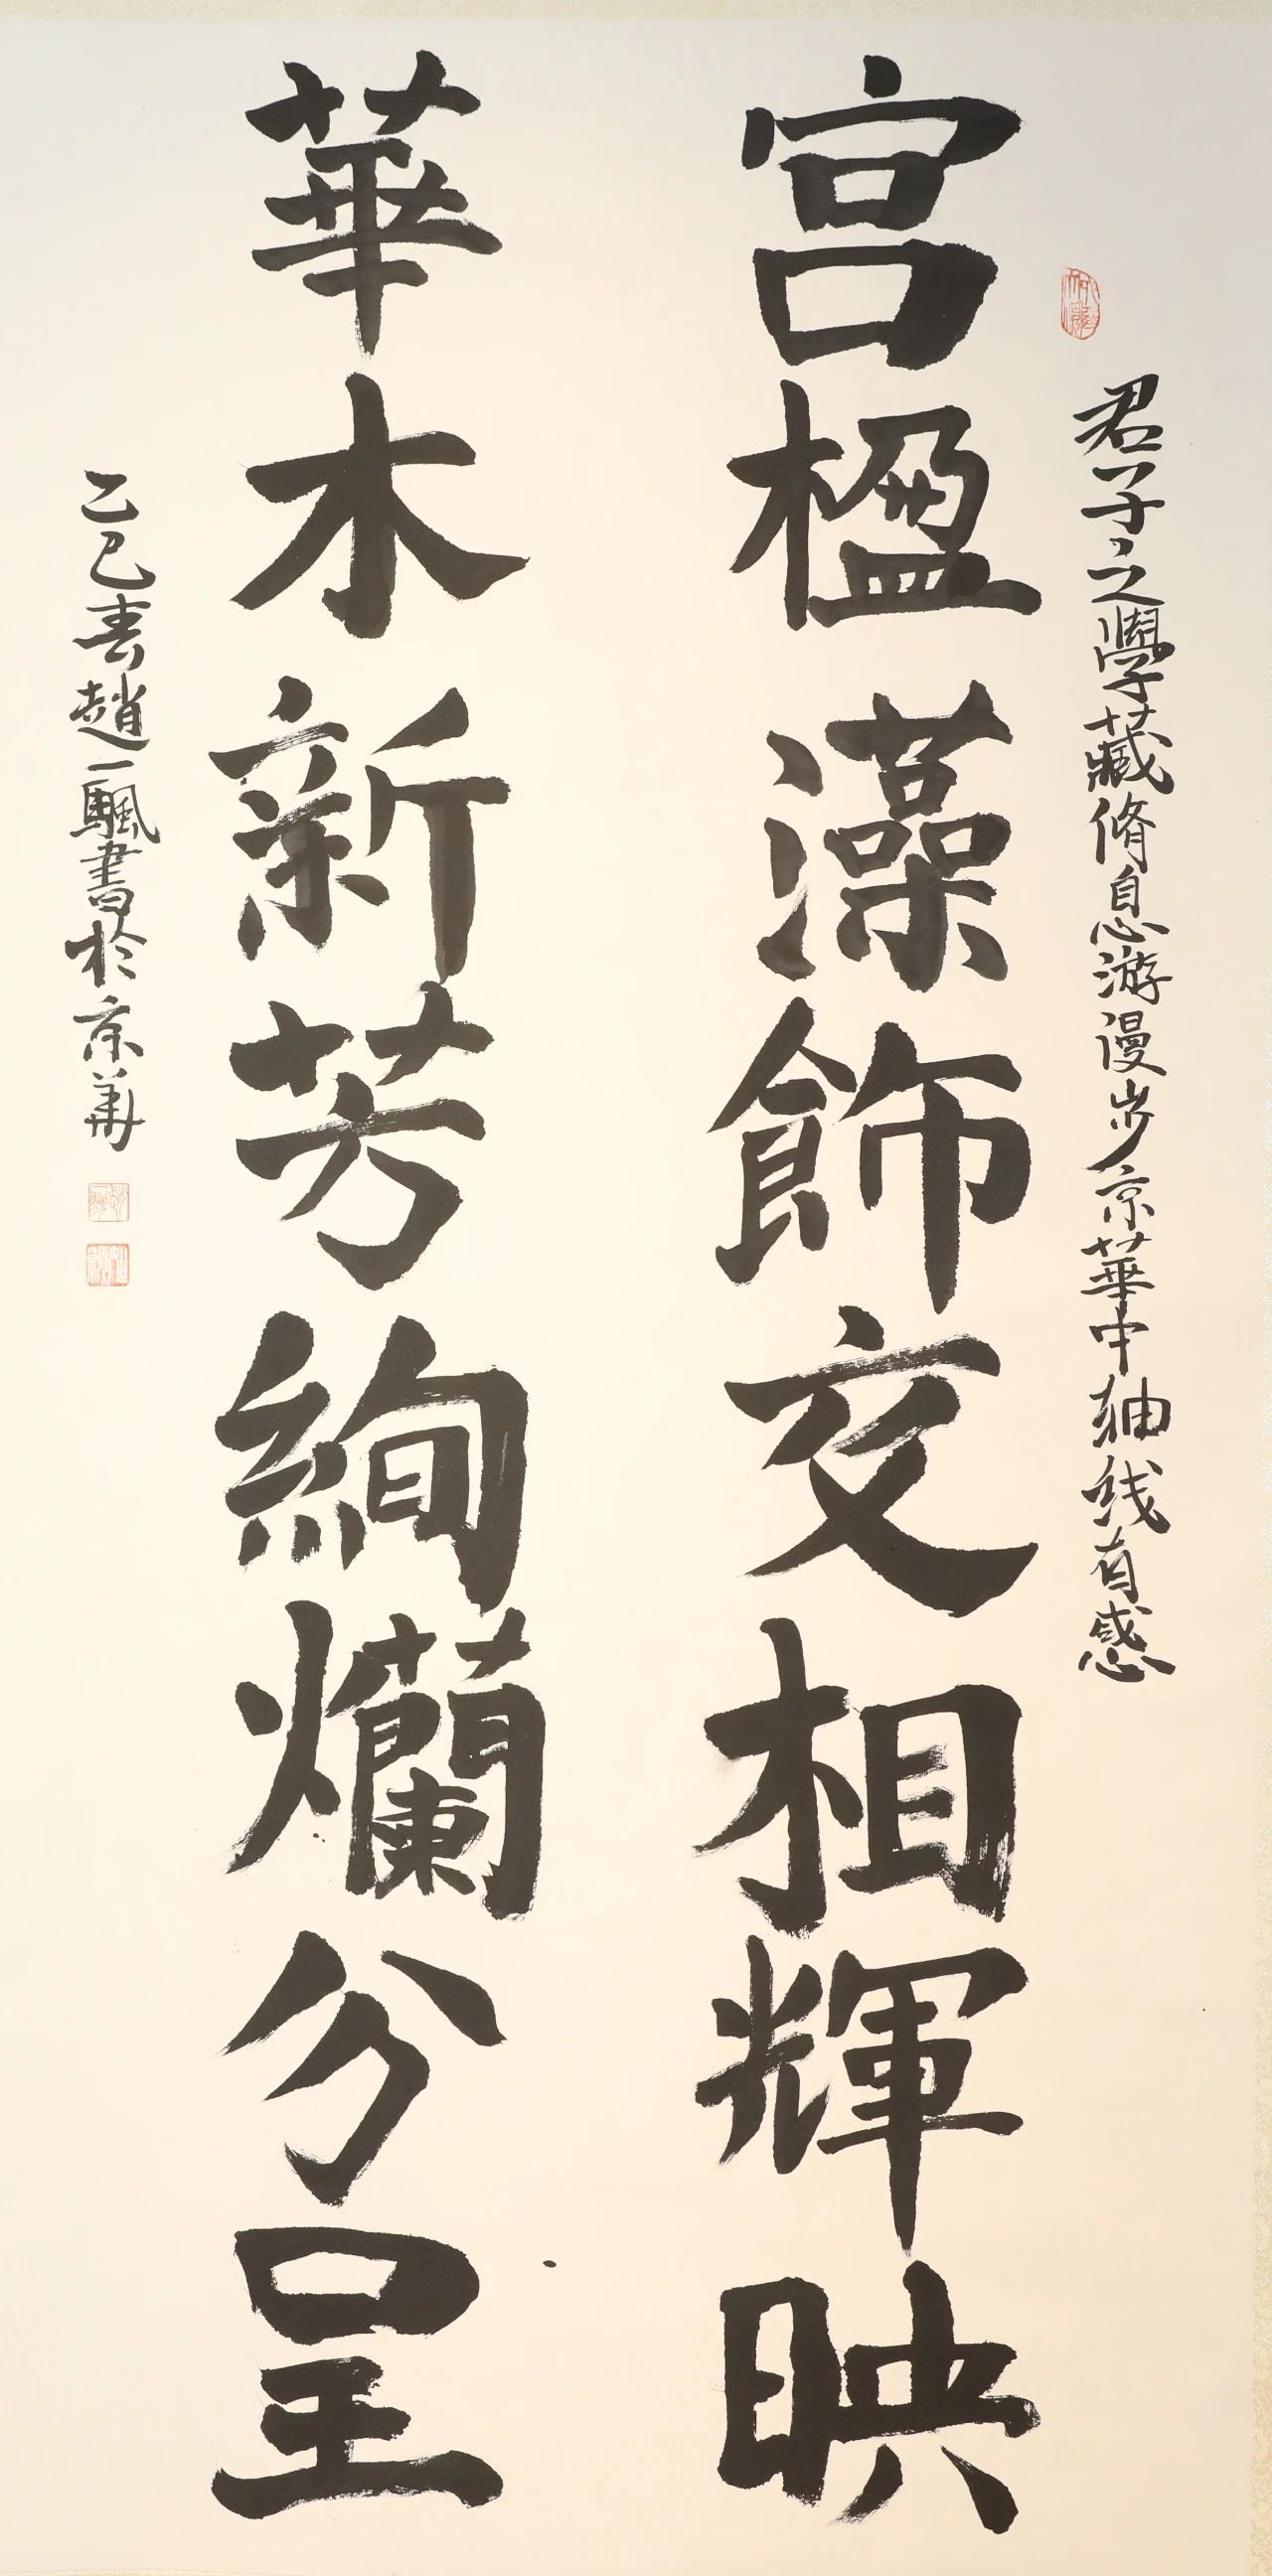 君子之學藏脩息游漫步京華中軸线有感
宮楹藻飾交相輝映
華木新芳絢爛分呈
乙巳春趙一颿書於京華